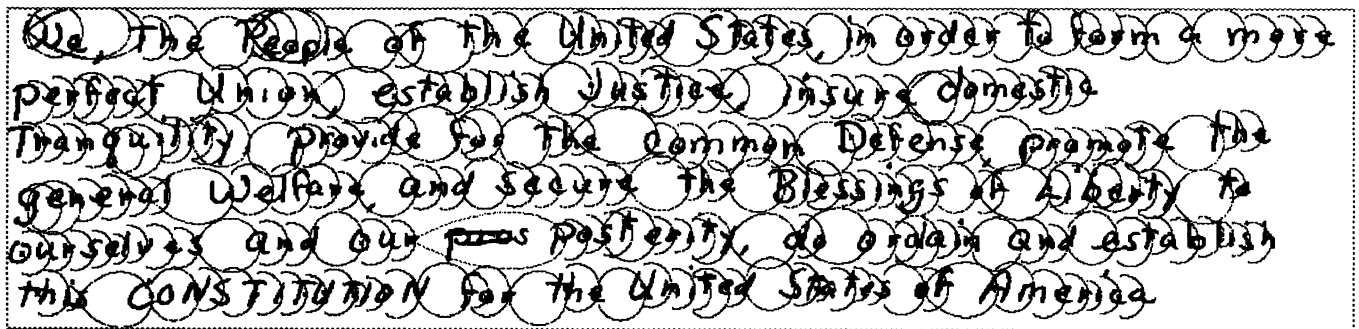 We, The People of the United States, in order to form a more
perfect Union, establish Justice, insure domestic
Tranquility, provide for the Common Defense, promote the
general Welfare, and secure the Blessings of Liberty to
ourselves and our posterity, do ordain and establish
this CONSTITUTION for the United States of America